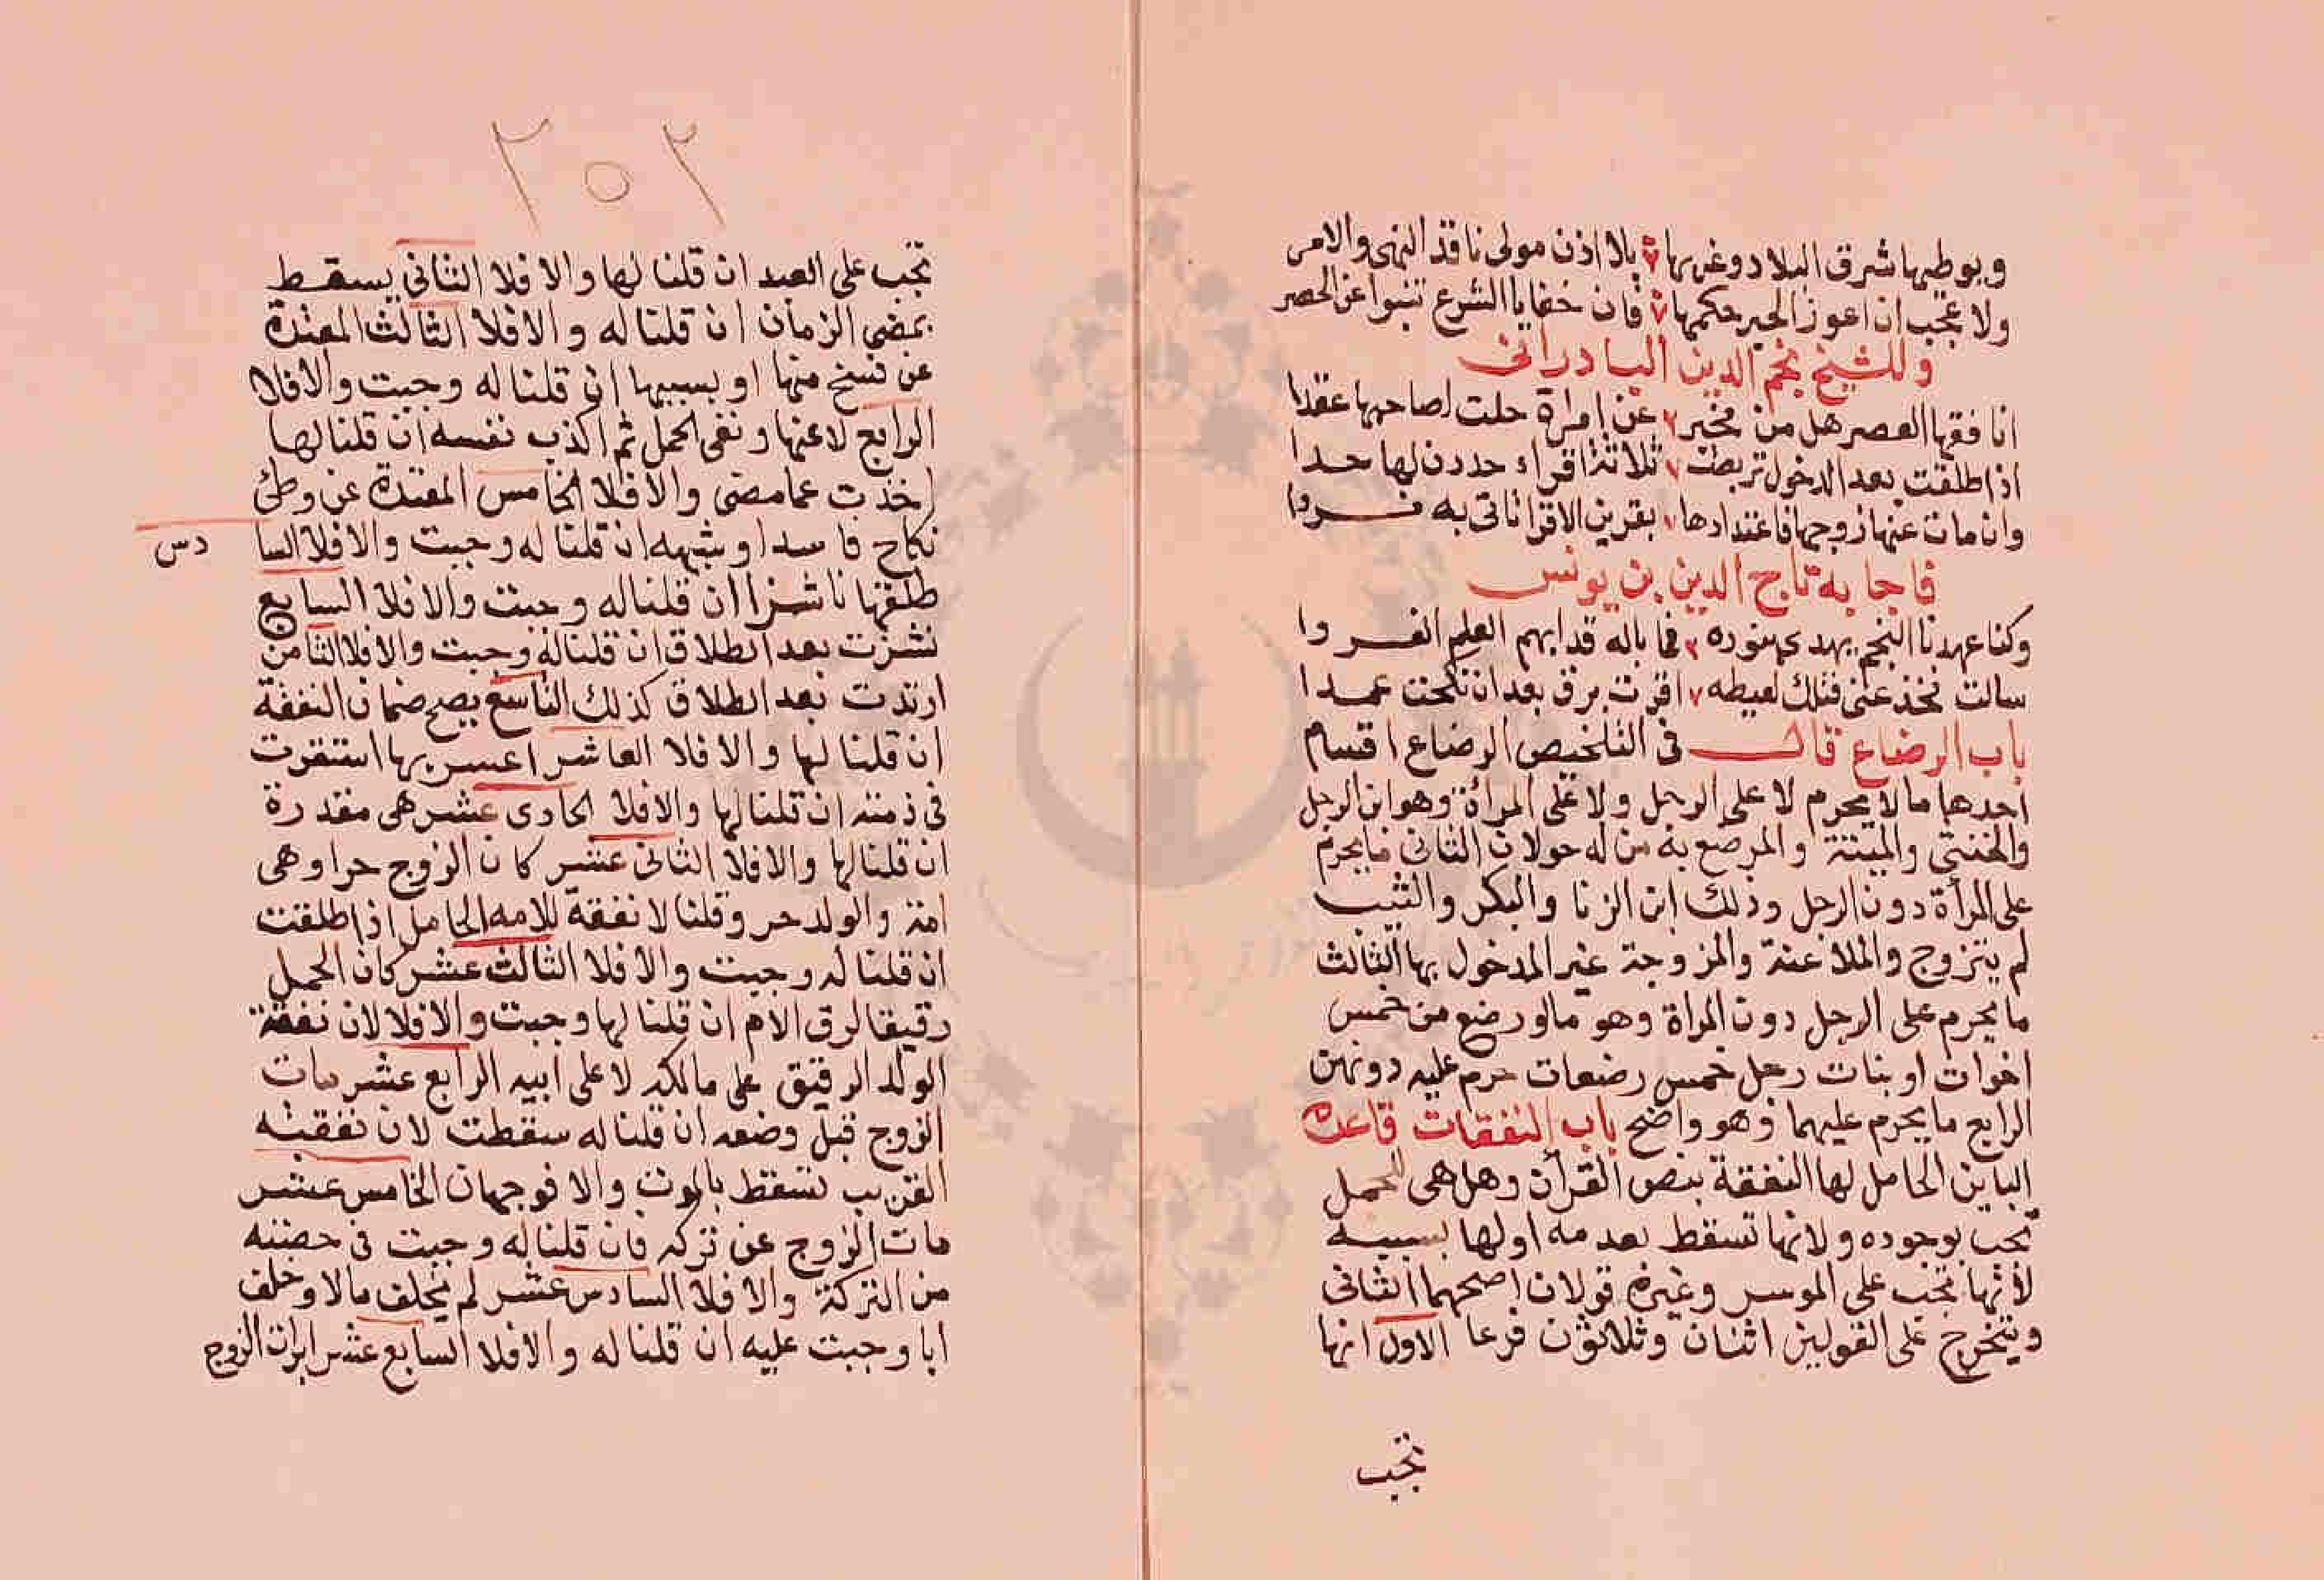 ويوطيها شرق البلاد وغربها بلا اذن مولى ناقد النهى والامر
ولا عجب ان اعوز الحبر حكمها فان خفايا الشرع تنبوا عن الحصر
وللشيخ نجم الدين البادرانى
انا فقها العصر هل من مخبر عن امراة حلت لصاحبها عقدا
اذا طلقت بعد الدخول تربصت ثلاثة اقراء حددن لها حدا
وان مات عنها زوجها فاعتدادها بقرين الاقرا تاتى به فردا
فاجابه تاج الدين بن يونس
وكنا عهدنا النجم يهدى بنوره فما باله قد ابهم العلم الفردا
سالت فخذ عنى فتلك لقيطه اقرت برق بعد ان نكحت عمدا
باب الرضاع قال فى التلخيص الرضاع اقسام
احدها مالا يحرم لا على الرجل ولا على المراة وهو ابن الرجل
والخنثى والميتة والمرضع به من له حولان الثانى ما يحرم
على المرأة دون الرجل وذلك ابن الزنا والبكر والثيب
لم يتزوج والملاعنة والمزوجة غير المدخول بها الثالث
ما يحرم على الرجل دون المراة وهو مالو رضع من خمس
اخوات او بنات رجل خمس رضعات حرم عليه دونهن
الرابع ما يحرم عليهما وهو واضح باب النفقات قاعدة
الباين الحامل لها النفقة بنص القرآن وهل هى للحمل
تجب بوجوده ولانها تسقط بعدمه اولها بسببه
لانها تجب على الموسر وغيره قولان اصحهما الثانى
ويتخرج على القولين اثنان وثلاثون فرعا الاول انها
تجب
٣٥٢
تجب على العبد ان قلنا لها والا فلا الثانى يسقط
بمضى الزمان ان قلنا له والا فلا الثالث المعتدة
عن فسخ منها او بسببها ان قلنا له وجبت والا فلا
الرابع لاعنها ونفى الحمل ثم اكذب نفسه ان قلنا لها
اخذت عما مضى والا فلا الخامس المعتدة عن وطئ
نكاح فاسد او شبهه ان قلنا له وجبت والا فلا السا دس
طلقها ناشزا ان قلنا له وجبت والا فلا السابع
نشزت بعد الطلاق ان قلنا له وجبت والا فلا الثامن
ارتدت بعد الطلاق كذلك التاسع يصح ضمان النفقة
ان قلنا لها والا فلا العاشر اعسر بها استقرت
فى ذمته ان قلنا لها والا فلا الحادى عشر هى مقدرة
ان قلنا لها والا فلا الثانى عشر كان الزوج حرا وهى
امة والولد حر وقلنا لا نفقة للامه الحامل اذا طلقت
ان قلنا له وجبت والا فلا الثالث عشر كان الحمل
رقيقا لرق الام ان قلنا لها وجبت والا فلا لان نفقة
الولد الرقيق على مالكه لا على ابيه الرابع عشر مات
الزوج قبل وضعه ان قلنا له سقطت لان نفقته
القريب تسقط بالموت والا فوجهان الخامس عشر
مات الزوج عن تركه فان قلنا له وجبت فى حضته
من التركة والا فلا السادس عشر لم يخلف مالا وخلف
ابا وجبت عليه ان قلنا له والا فلا السابع عشر ابرات الزوج